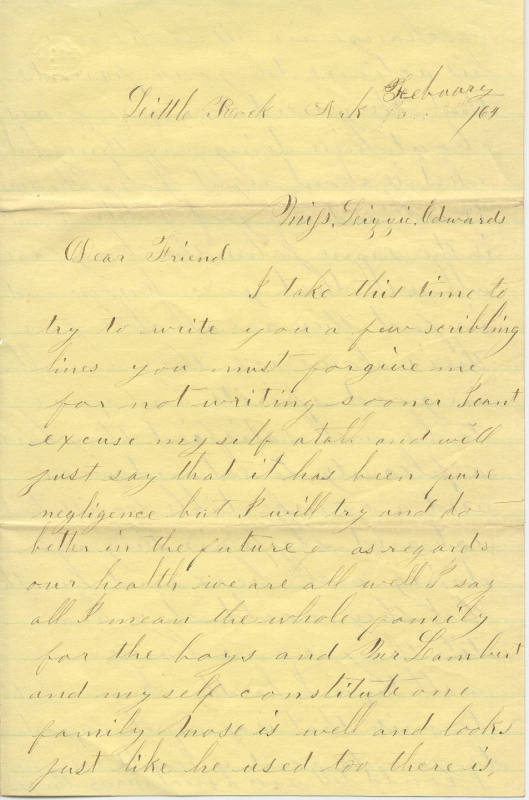 February
Little Rock Ark /64
Miss. Lizzie. Edwards
Dear Friend
I take this time to
try to write you a few scribling
lines you must forgive me
for not writing sooner I cant
excuse myself atall and will
just say that it has been pure
negligence but I will try and do
better in the future as regards
our health we are all well I say
all I mean the whole family
for the boys and Mr Lambert
and myself constitute one
family Mose is well and looks
just like he used too there is,